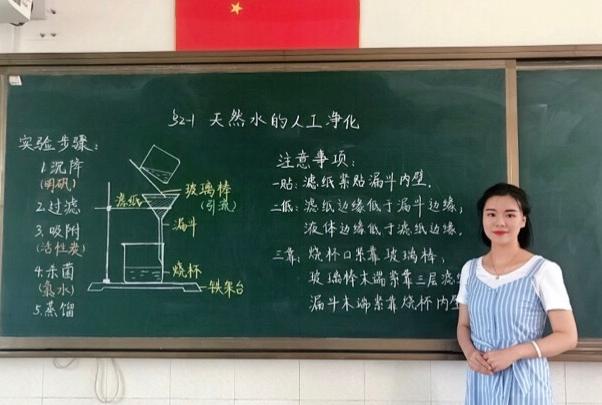 §2-1 天然水的人工净化
实验步骤:
1.沉降
(明矾)
2.过滤
3.吸附
(活性炭)
4.杀菌
(氯水)
5.蒸馏
滤纸
玻璃棒
(引流)
漏斗
烧杯
铁架台
注意事项:
一贴: 滤纸紧贴漏斗内壁.
二低: 滤纸边缘低于漏斗边缘,
液体边缘低于滤纸边缘.
三靠: 烧杯口紧靠玻璃棒,
玻璃棒末端紧靠三层滤
漏斗末端紧靠烧杯内壁